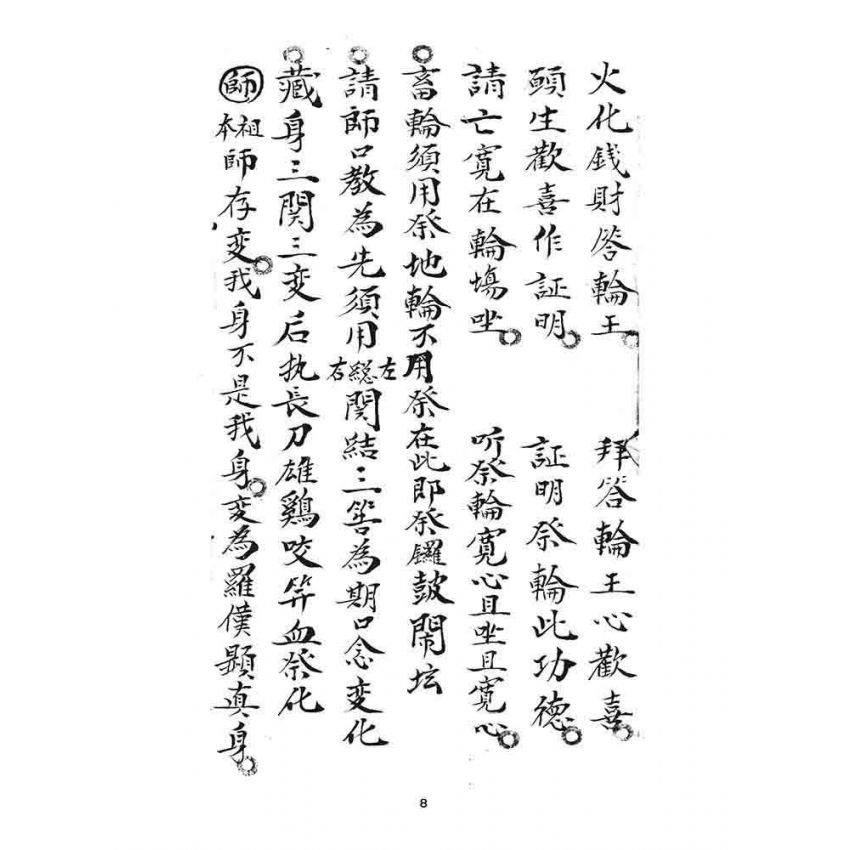 火化錢財答輪王 拜答輪王心歡喜
願生歡喜作証明 証明祭輪此功德
請亡寬在輪塲坐 听祭輪寬心且坐且寬心
畜輪須用祭地輪不用祭在此即祭鑼鼓鬧坛
請師口教為先須用左總右関結三筶為期口念变化
藏身三関三变后执長刀雄鷄咬笄血祭化
師祖本師存变我身不是我身变為羅僕顕真身
8